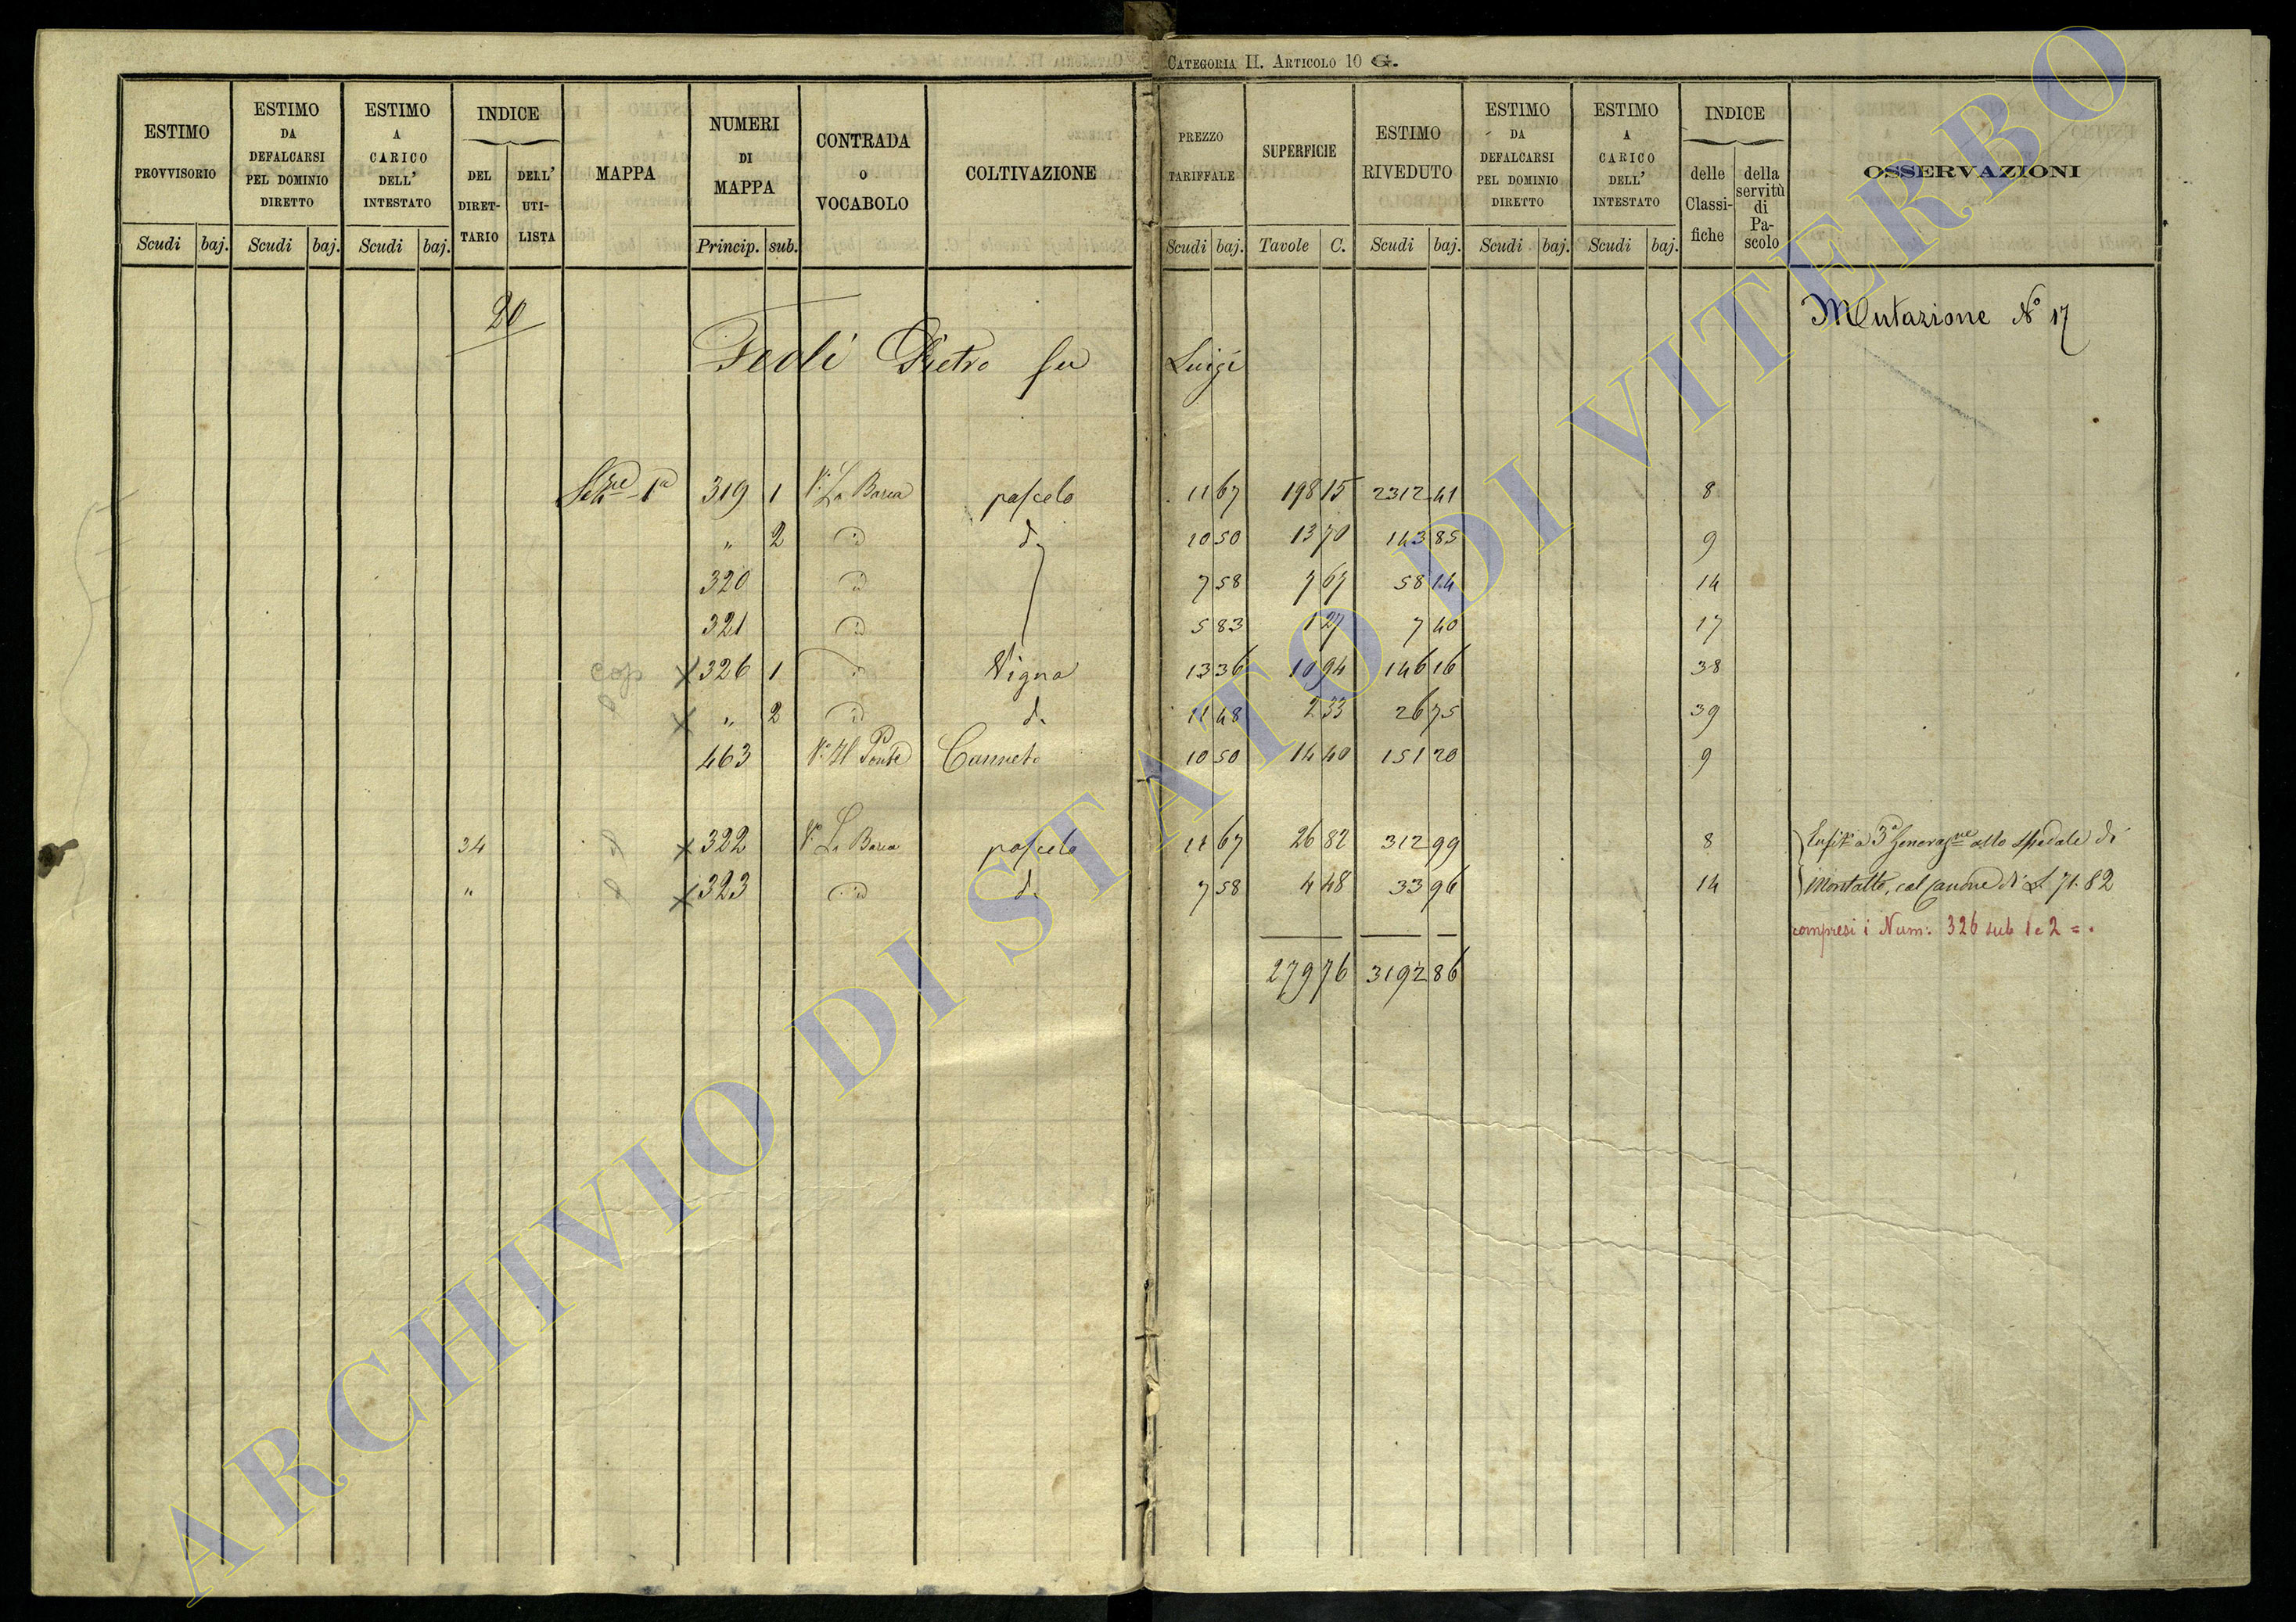 CATEGORIA II. ARTICOLO 10 G.
ESTIMO PROVVISORIO | ESTIMO DA DEFALCARSI PEL DOMINIO DIRETTO | ESTIMO A CARICO DELL' INTESTATO | INDICE DEL DIRET-TARIO | DELL' UTI-LISTA | MAPPA | NUMERI DI MAPPA | CONTRADA O VOCABOLO | COLTIVAZIONE | PREZZO TARIFFALE | SUPERFICIE | ESTIMO RIVEDUTO | ESTIMO DA DEFALCARSI PEL DOMINIO DIRETTO | ESTIMO A CARICO DELL' INTESTATO | INDICE delle Classi-fiche | della servitù di Pa-scolo | OSSERVAZIONI
Scudi | baj. | Scudi | baj. | Scudi | baj. | Princip. | sub. | Scudi | baj. | Tavole | C. | Scudi | baj. | Scudi | baj. | Scudi | baj.
20 | Mutazione N° 17
Fedi Pietro fu Luigi
Sezne 1a | 319 | 1 | Va La Barca | pascolo | 11 | 67 | 198 | 15 | 2312 | 41 | 8
" | 2 | id | do | 10 | 50 | 13 | 70 | 143 | 85 | 9
320 | id | 7 | 58 | 7 | 67 | 58 | 14 | 14
321 | id | 5 | 83 | 1 | 27 | 7 | 40 | 17
cop | x 326 | 1 | Vigna | 13 | 36 | 10 | 94 | 146 | 16 | 38
x " | 2 | id | d. | 11 | 48 | 2 | 33 | 26 | 75 | 39
463 | Va Il Ponte | Canneto | 10 | 50 | 14 | 40 | 151 | 20 | 9
34 | x 322 | Va La Barca | pascolo | 11 | 67 | 26 | 82 | 312 | 99 | 8 | Enfita a 3a Generazne allo Spedale di
" | x 323 | id | d. | 7 | 58 | 4 | 48 | 33 | 96 | 14 | Montalto, col canone di L. 71.82
compresi i Num: 326 sub 1 e 2 =.
279 | 76 | 3192 | 86
ARCHIVIO DI STATO DI VITERBO